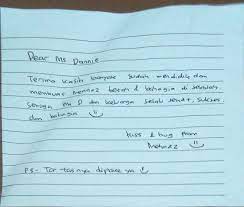 Dear Ms Dannie
Terima kasih banyak sudah mendidik dan
membuat Mehnaz becan & bahagia di sekolah.
Semoga ms D dan keluarga selalu sehat, sukses,
dan bahagia
kiss & hug from
Mehnaz
PS - Tor tasnya dipakai ya